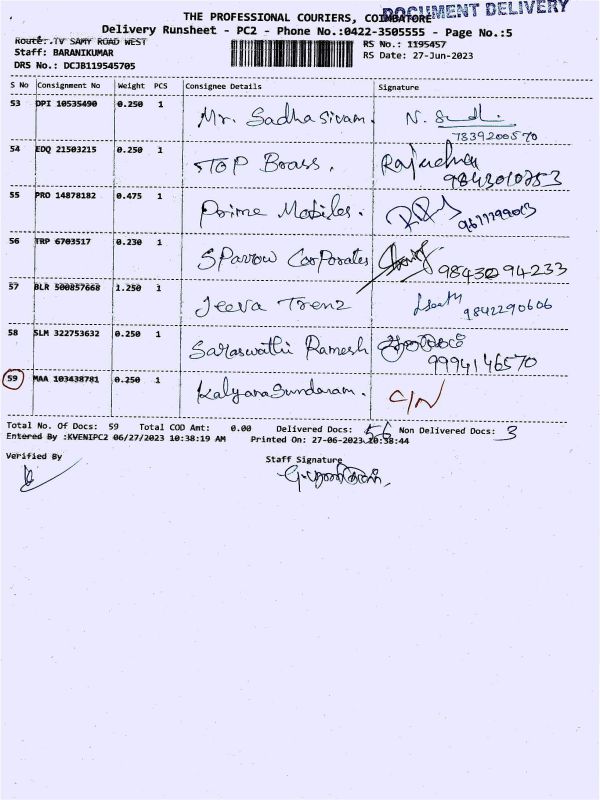 DOCUMENT DELIVERY
THE PROFESSIONAL COURIERS, COIMBATORE
Delivery Runsheet - PC2 - Phone No.:0422-3505555 - Page No.:5
Route: .TV SAMY ROAD WEST
RS No.: 1195457
Staff: BARANIKUMAR
RS Date: 27-Jun-2023
DRS No.: DCJB119545705
S No Consignment No Weight PCS Consignee Details Signature
53 DPI 10535490 0.250 1 Mr. Sadhasivam. N.
7339200570
54 EDQ 21503215 0.250 1 STOP Brass.
9843010753
55 PRO 14878182 0.475 1 Prime Mobiles.
56 TRP 6703517 0.230 1 SParrow CorPorates 9843294233
57 BLR 500857668 1.250 1 Jeeva Trenz
9842290606
58 SLM 322753632 0.250 1 Saraswathi Ramesh
9994146570
59 MAA 103438781 0.250 1 KalyanaSundaram. C/N
Total No. Of Docs: 59 Total COD Amt: 0.00 Delivered Docs: 56 Non Delivered Docs: 3
Entered By :KVENIPC2 06/27/2023 10:38:19 AM Printed On: 27-06-2023 10:38:44
Verified By Staff Signature